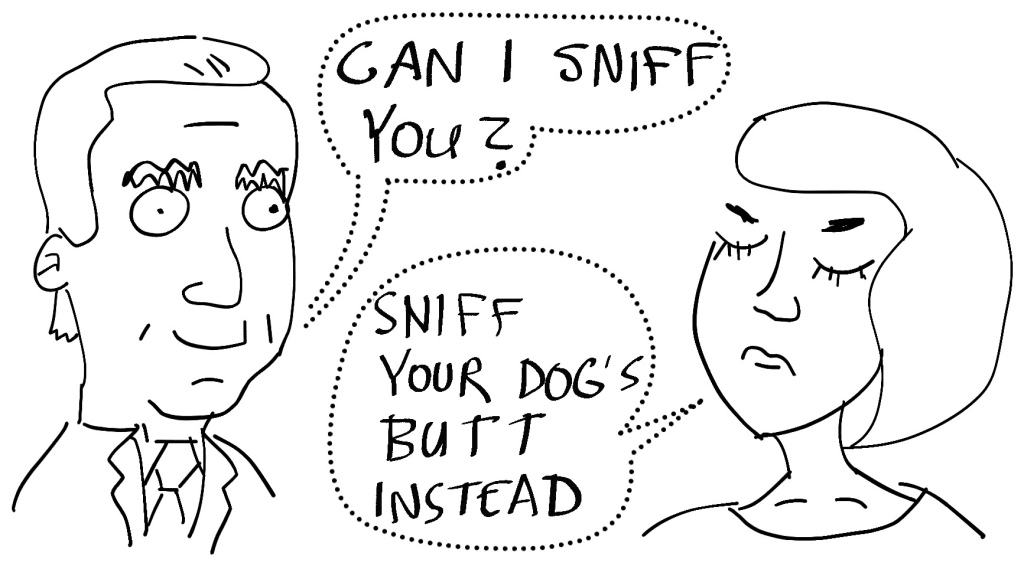 CAN I SNIFF
YOU?
SNIFF
YOUR DOG'S
BUTT
INSTEAD